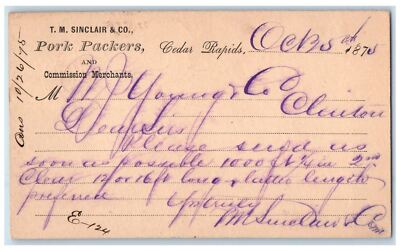 T. M. SINCLAIR & CO.,
Pork Packers,
AND
Commission Merchants.
Cedar Rapids, Oct 25th 1875
Ans 10/26/75
M W J Young & Co
Clinton
Dear Sirs
Please send us
soon as possible 1000 ft 1/4 in 2nd
Clear 12 or 16 ft long latter lengths
preferred Yours truly
E-124
T M Sinclair & Co